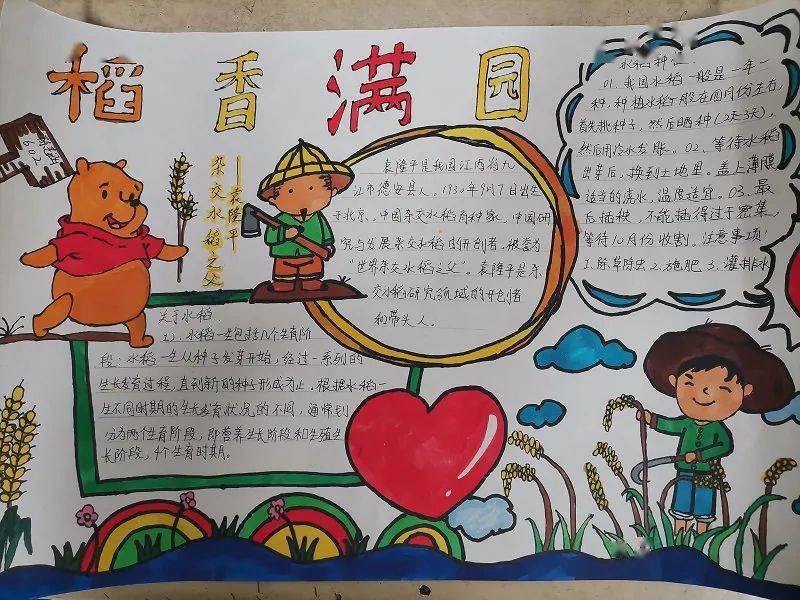 稻香满园
602
杂交水稻之父
——袁隆平
袁隆平是我国江西省九
江市德安县人。1930年9月7日出生
于北京，中国杂交水稻育种家，中国研
究与发展杂交水稻的开创者，被誉为
“世界杂交水稻之父”。袁隆平是杂
交水稻研究领域的开创者
和带头人。
水稻种植:
01.我国水稻一般是一年一
种，种植水稻一般在四月份左右，
首先挑种子，然后晒种(2天3天)，
然后用冷水发胀。02、等待水稻
出芽后，换到土地里。盖上薄膜
适当的浇水，温度适宜。03、最
后插秧，不能插得过于密集，
等待10月份收割。注意事项:
1.除草除虫2.施肥3.灌排水
关于水稻
1)、水稻一生包括几个生育阶
段:水稻一生从种子发芽开始，经过一系列的
生长发育过程，直到新的种子形成为止。根据水稻一
生不同时期的生长发育状况的不同，通常划
分为两个生育阶段，即营养生长阶段和生殖生
长阶段，4个生育时期。